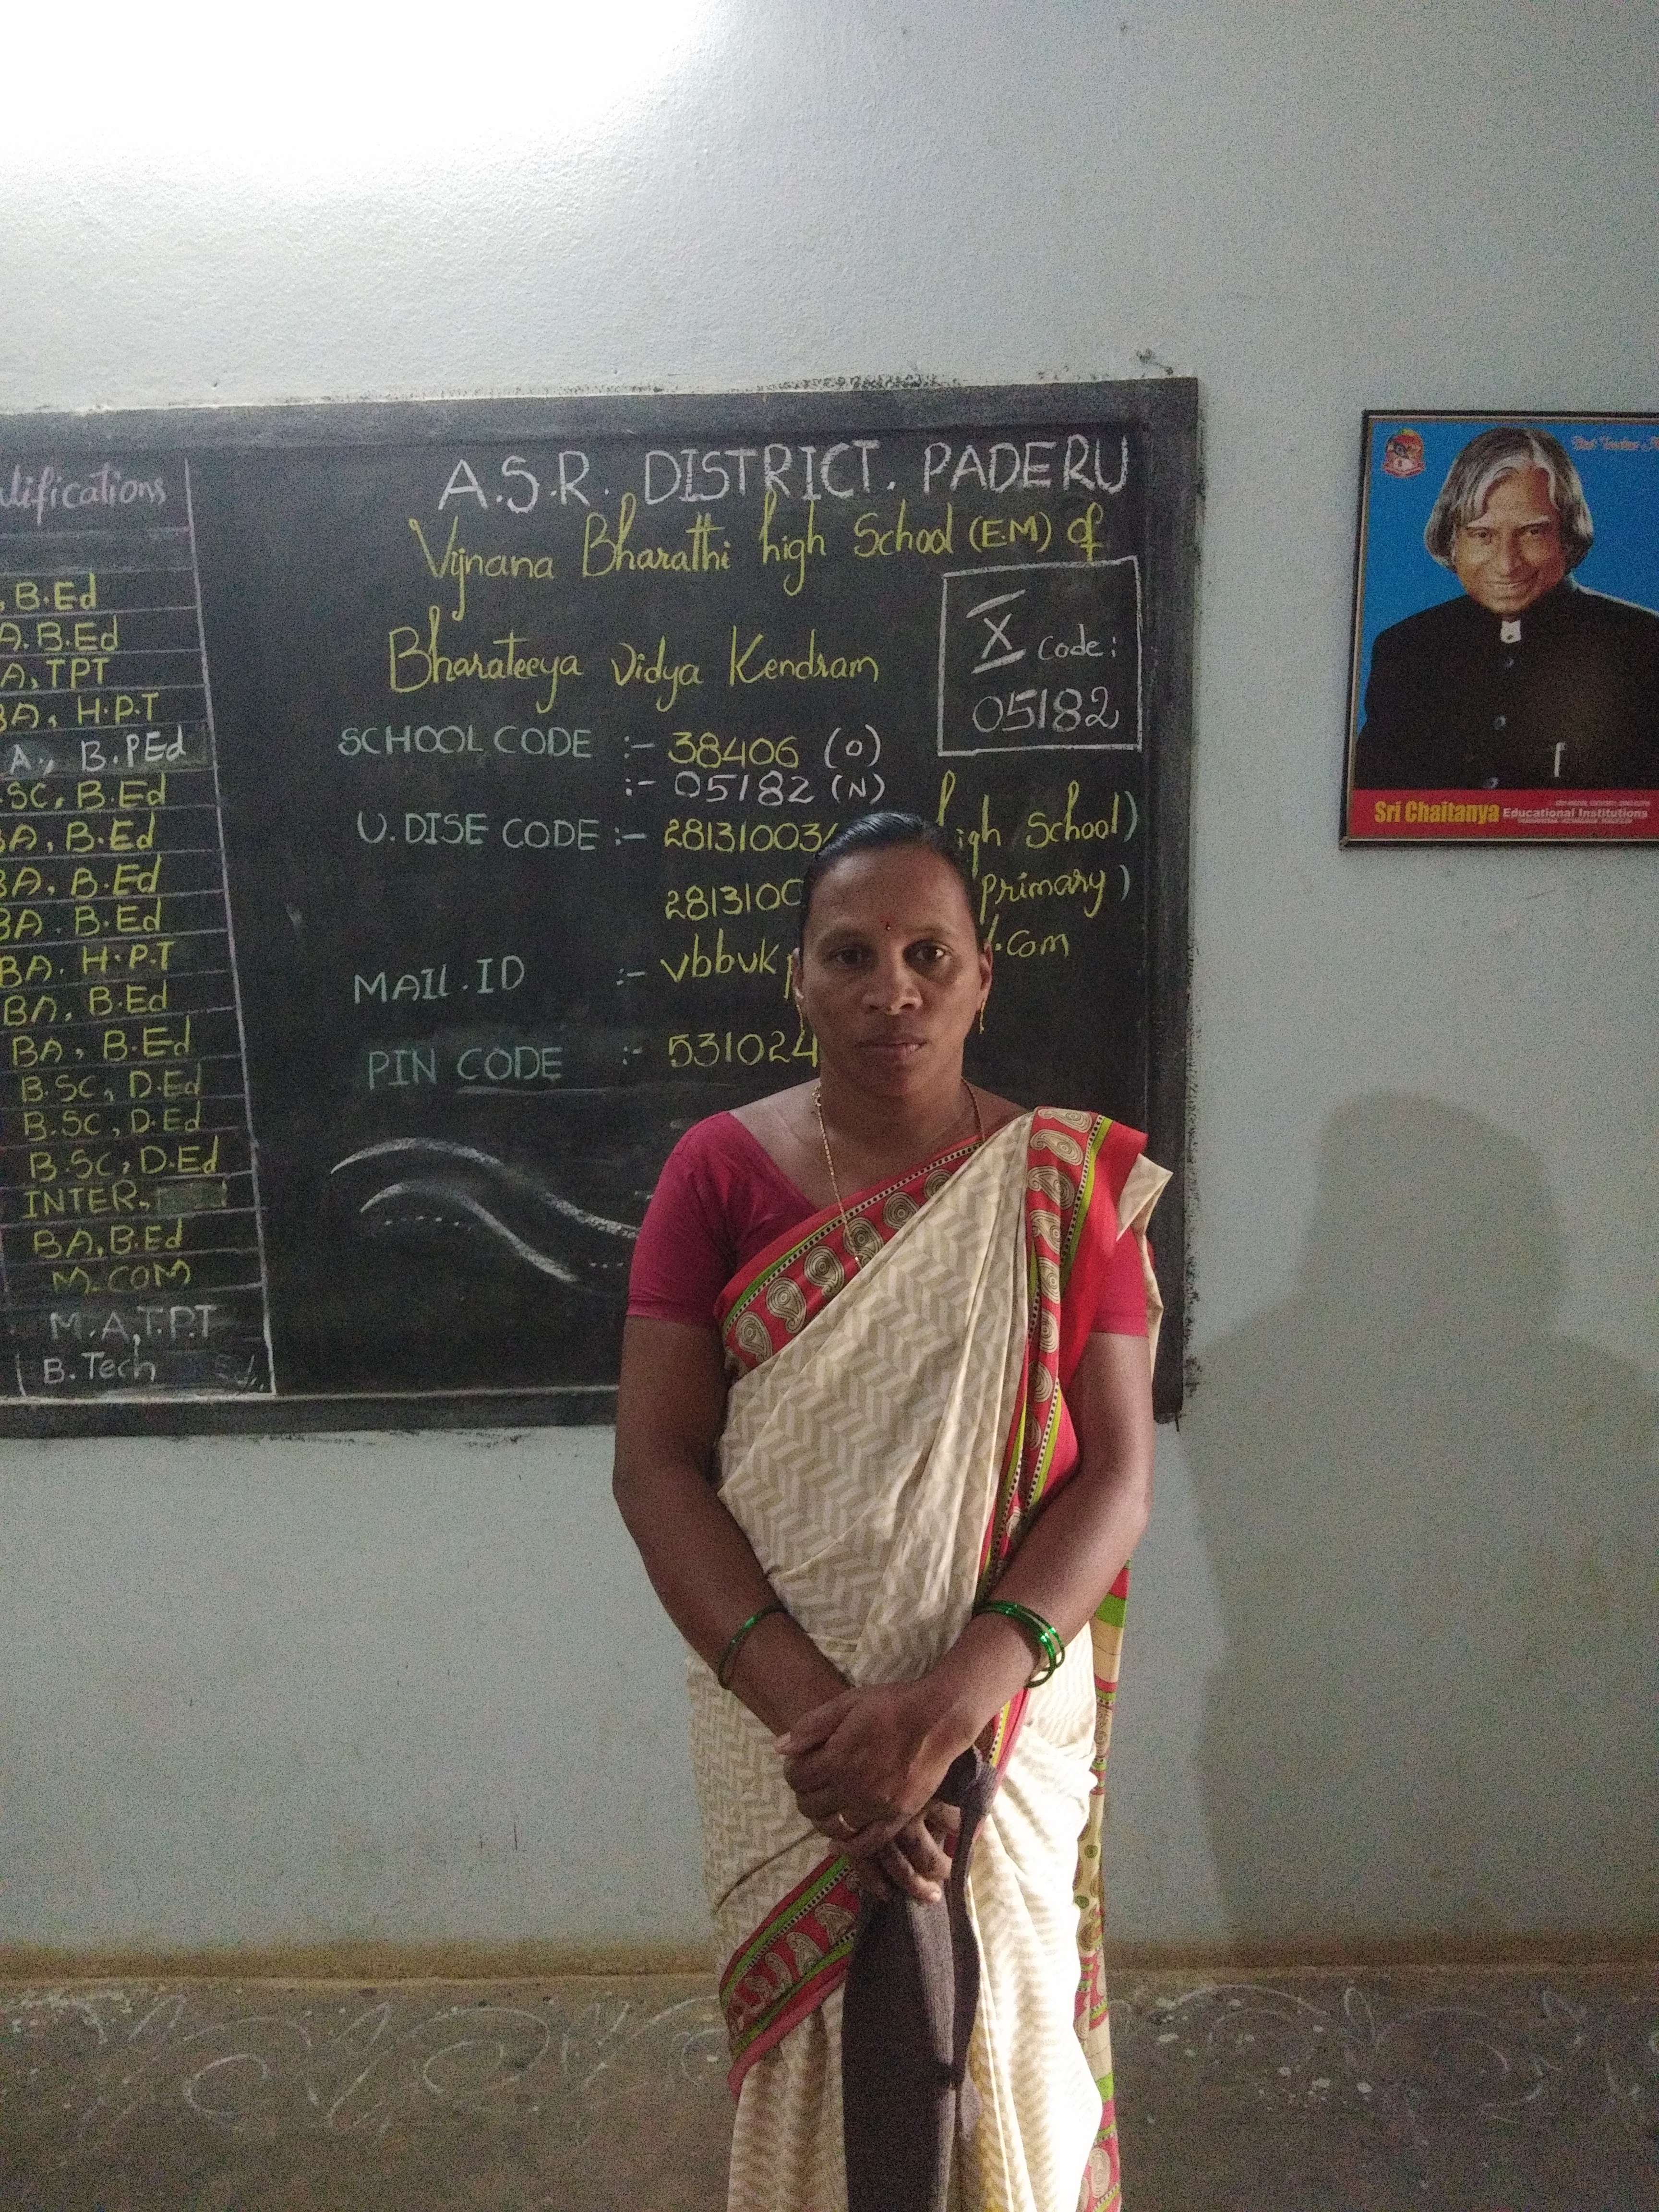 A.S.R. DISTRICT. PADERU
Vijnana Bharathi high School (E.M) of
Bharateeya Vidya Kendram
X Code:
05182
SCHOOL CODE :- 38406 (O)
:- 05182 (N)
U.DISE CODE :- 28131003 high School)
281310 Primary)
MAIL.ID :- vbbvk .com
PIN CODE :- 531024
alifications
, B.Ed
A. B.Ed
A, TPT
BA, H.P.T
A., B.PEd
.SC, B.Ed
BA, B.Ed
BA, B.Ed
BA. B.Ed
BA. H.P.T
BA, B.Ed
BA, B.Ed
B.SC, D.Ed
B.SC, D.Ed
B.SC, D.Ed
INTER.
BA, B.Ed
M.COM
M.A, T.P.T
B.Tech
Sri Chaitanya Educational Institutions